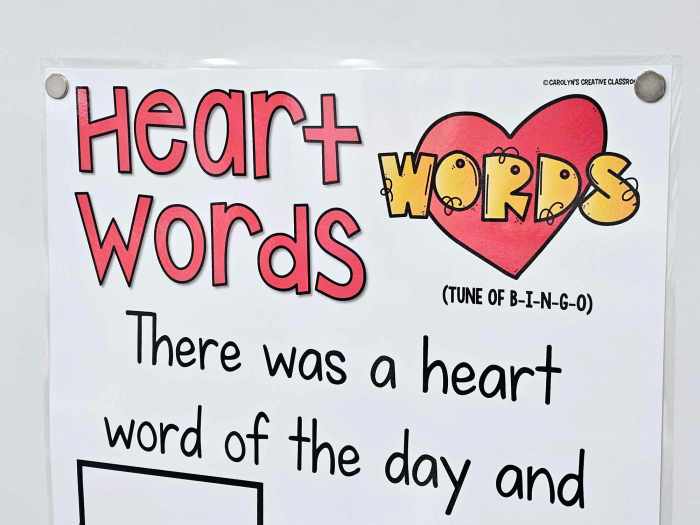 ©CAROLYN'S CREATIVE CLASSRO
Heart
Words
WORDS
(TUNE OF B-I-N-G-O)
There was a heart
word of the day and